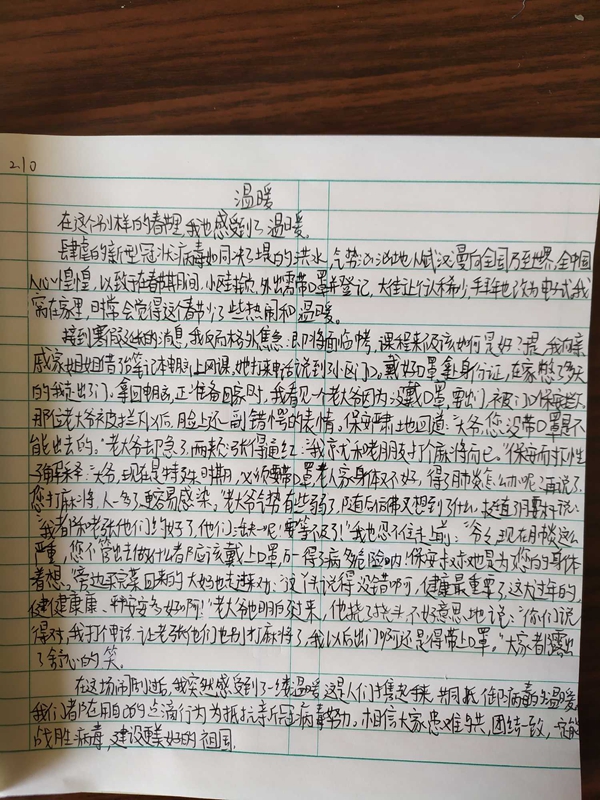 2.10
温暖
在这个别样的春节里,我也感受到了温暖。
肆虐的新型冠状病毒如同决了堤的洪水,气势汹汹地从武汉漫向全国乃至世界,全中国
人心惶惶,以致于在春节期间,小区封锁,外出需带口罩并登记,大街上行人稀少,拜年也改为电子式,我
窝在家里,时常会觉得这春节少了些热闹和温暖。
接到寒假延长的消息,我反而格外焦急:即将面临中考,课程来不及该如何是好?提
亲戚家姐姐借我笔记本电脑上网课,她打来电话说到小区门口。戴好口罩拿上身份证,在家憋了多天
的我走出了门。拿回电脑,正准备回家时,我看见一个老大爷因为没戴口罩要出门,被门口保安拦
那位老大爷被拦以后,脸上还一副错愕的表情,保安严肃地回道:“大爷,您没带口罩是不
能出去的。”老大爷却急了,两颊涨得通红:“我就是和老朋友打个麻将而已。”保安耐性
子解释:“大爷,现在是特殊时期,必须要带口罩,老人家身体又不好,得了肺炎怎么办呢?再说了,
您打麻将,人一多了更容易感染。”老大爷气势有些弱了,随后仿佛又想到了什么,挺直了胸脯说:
“我都和老张他们约好了,他们三缺一呢!要等不及了!”我也忍不住走上前:“爷爷,现在肺炎这么
严重,您不管出去做什么都应该戴上口罩,万一得了病多危险呐!保安叔叔也是为了您的身体
着想。”旁边买完菜回来的大妈也走来劝:“这丫头说得没错啊,健康最重要了,这大过年的,
健健康康、平平安安多好啊!”老大爷也明白过来,他挠了挠头,不好意思地说:“你们说
得对,我打个电话,让老张他们也别打麻将了,我以后出门啊还是得带上口罩。”大家都露出
了舒心的笑。
在这场闹剧过后,我突然感受到了一丝温暖,这是人们携起手来共同抵御病毒的温暖。
我们都在用自己的点滴行为为抵抗新冠病毒努力。相信大家患难与共,团结一致,一定能
战胜病毒,建设更美好的祖国。